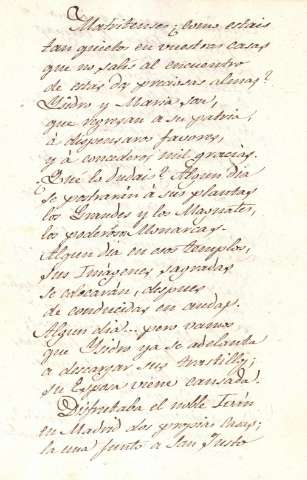 Matritenses; como estais
tan quietos en vuestras casas
que no salis al encuentro
de estas dos preciosas almas?
Ysidro y Maria son,
que regresan a su patria,
á dispensaros favores,
y á concederos mil gracias.
Que lo dudais? Algun dia
se postrarán á sus plantas
los Grandes y los Magnates,
los poderosos Monarcas.
Algun dia en esos templos,
sus Imágenes sagradas
se colocarán, despues
de conducidas en andas.
Algun dia... pero vamos
que Ysidro ya se adelanta
a descargar sus trastillos;
su Esposa viene cansada.
Disfrutaba el noble
en Madrid dos propias casas;
la una junto a San Justo